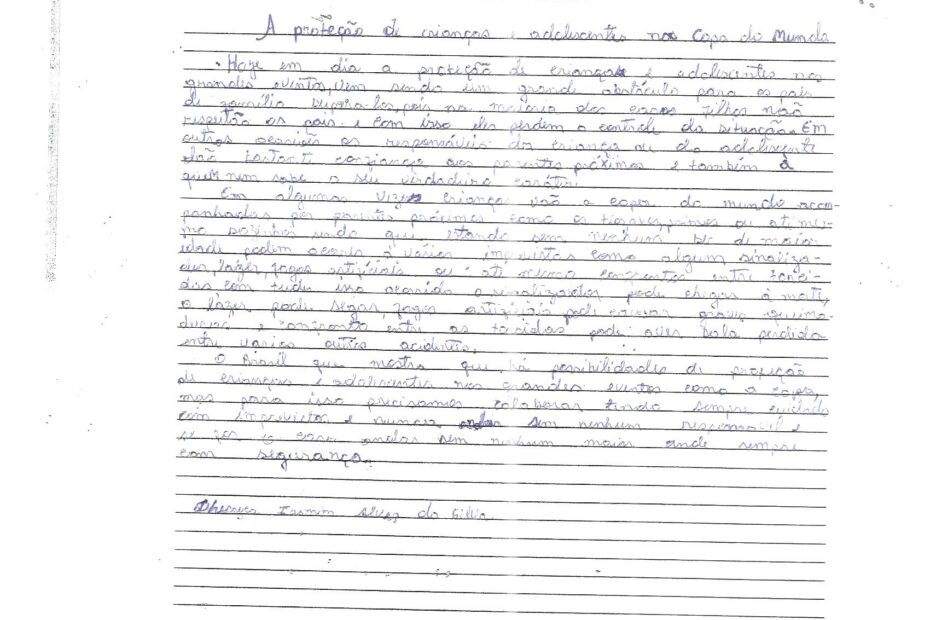 A proteção de crianças e adolescentes nas Copa do Mundo
Hoje em dia a proteção de crianças e adolescentes nos
grandes eventos, vem sendo um grande obstáculo para os pais
de família supera-los, pois na maioria dos casos filhos naõ
respeitão os pais e com isso eles perdem o controle da situação. Em
outras ocasiões os responsáveis da criança ou do adolescente
dão bastante confiança aos parentes próximos e também à
quem nem sabe o seu verdadeiro caráter.
Em algumas vezes crianças vão a copa do mundo acom-
panhadas por parentes próximos como os tios, primos ou até mes-
mo sozinhos sendo que estando sem nenhum de maior
idade podem ocorrer vários imprevistos como algum sinaliza-
dor, lazer, fogos artificiais ou até mesmo confrontos entre torci-
das com tudo isso ocorrido o sinalizador pode chegar à mata,
o lazer pode segar, fogos artificiais pode causar graves queima-
duras e confronto entre as torcidas pode aver bala perdida
entre vários outros acidentes.
O Brasil quer mostra que há possibilidades de proteção
de crianças e adolescentes nos grandes eventos como a copa,
mas para isso precisamos colaborar tendo sempre cuidado
com imprevistos e nunca andar sem nenhum responsável e
se for o caso andar sem nenhum maior ande sempre
com segurança.
Iasmin Alves da Silva